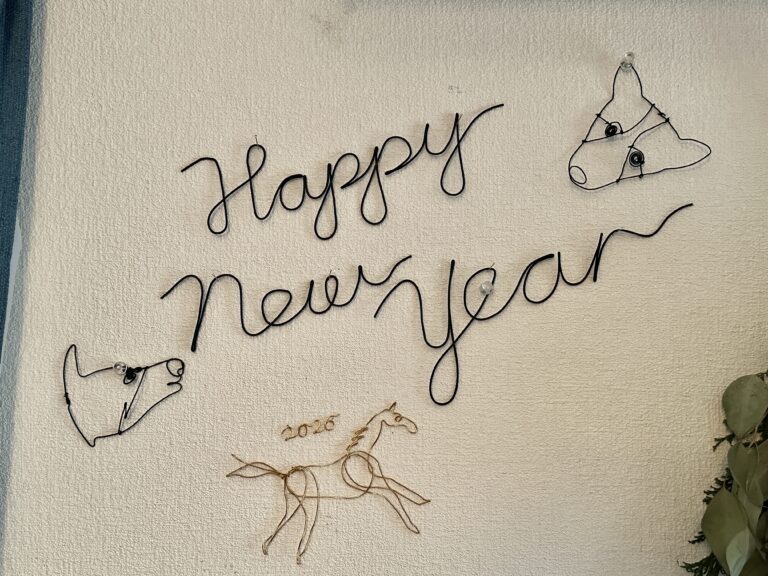 Happy
New Year
2026